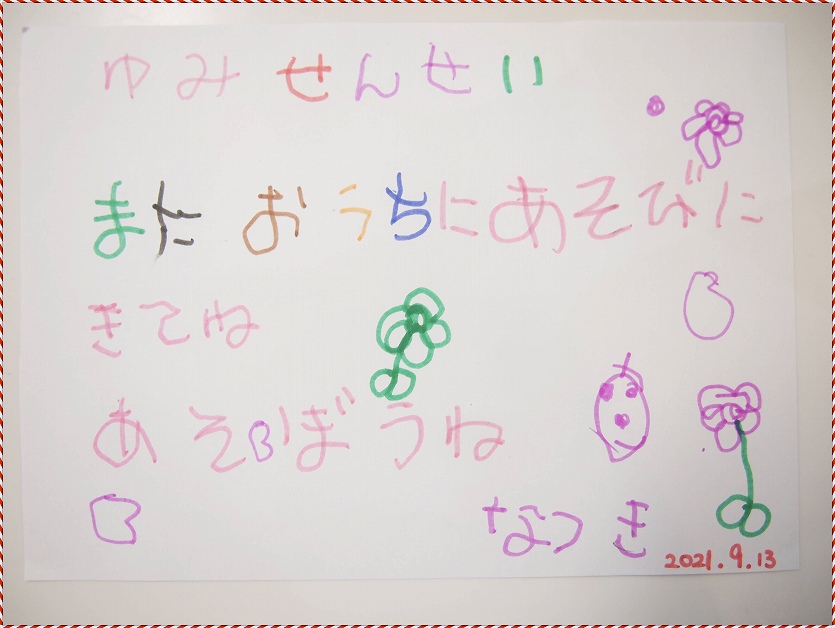 ゆみせんせい
またおうちにあそびに
きてね
あそぼうね
なつき
2021.9.13